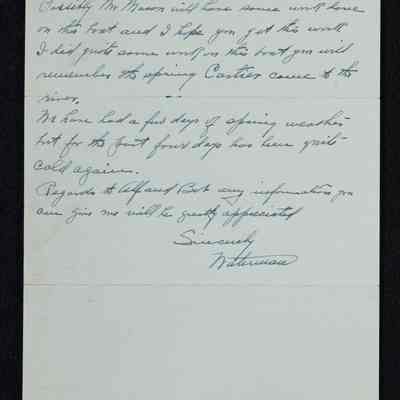 Possibly Mr Mason will have some work done
on this boat and I hope you get this work
I did quite some work on this boat you will
remember the spring Cartier came to the
river.
We have had a few days of spring weather
but for the past four days has been quite
cold again.
Regards to Alf and Bert any information you
can give me will be greatly appreciated
Sincerely
Waterman